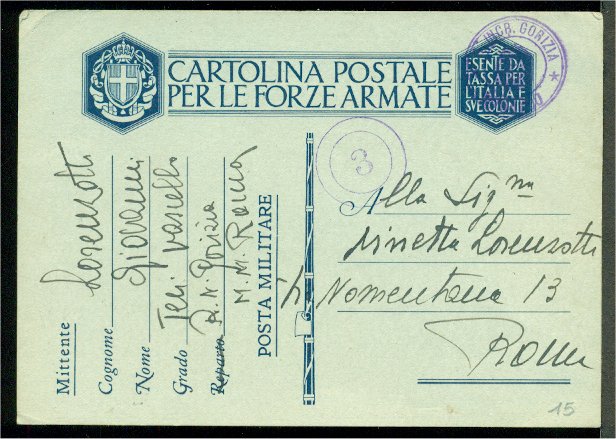 CARTOLINA POSTALE
PER LE FORZE ARMATE
ESENTE DA
TASSA PER
L'ITALIA E
SVE COLONIE
INCR. GORIZIA *
3
Mittente
Cognome Lorenzotti
Nome Giovanni
Grado Ten vascello
Reparto R. N. Gorizia
M. M. Roma
POSTA MILITARE
Alla Sig.na
Ninetta Lorenzotti
V. Nomentana 13
Roma
15